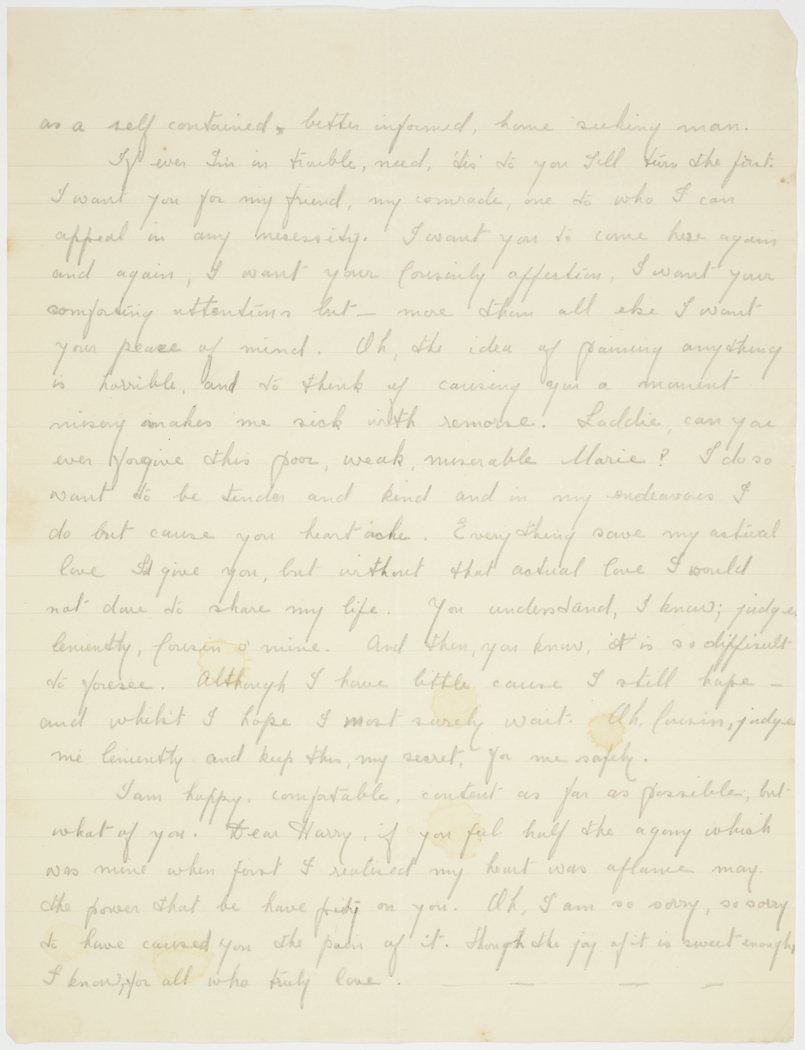 as a self contained, better informed, home seeking man.
If ever I'm in trouble, need, 'tis to you I'll turn the first.
I want you for my friend, my comrade, one to who I can
appeal in any necessity. I want you to come here again
and again, I want your Cousinly affection, I want your
comforting attentions but — more than all else I want
your peace of mind. Oh, the idea of paining anything
is horrible, and to think of causing you a moment
misery makes me sick with remorse. Laddie, can you
ever forgive this poor, weak, miserable Marie? I do so
want to be tender and kind and in my endeavours I
do but cause you heart ache. Everything save my actual
love I'd give you, but without that actual love I would
not dare to share my life. You understand, I know; judge
leniently, Cousin o' mine. And then, you know, it is so difficult
to foresee. Although I have little cause I still hope —
and whilst I hope I most surely wait. Oh, Cousin, judge
me leniently and keep this, my secret, for me safely.
I am happy, comfortable, content as far as possible, but
what of you. Dear Harry, if you feel half the agony which
was mine when first I realised my heart was aflame may
the power that be have pity on you. Oh, I am so sorry, so sorry
to have caused you the pain of it. though the joy of it is sweet enough,
I know, for all who truly love. — — — —